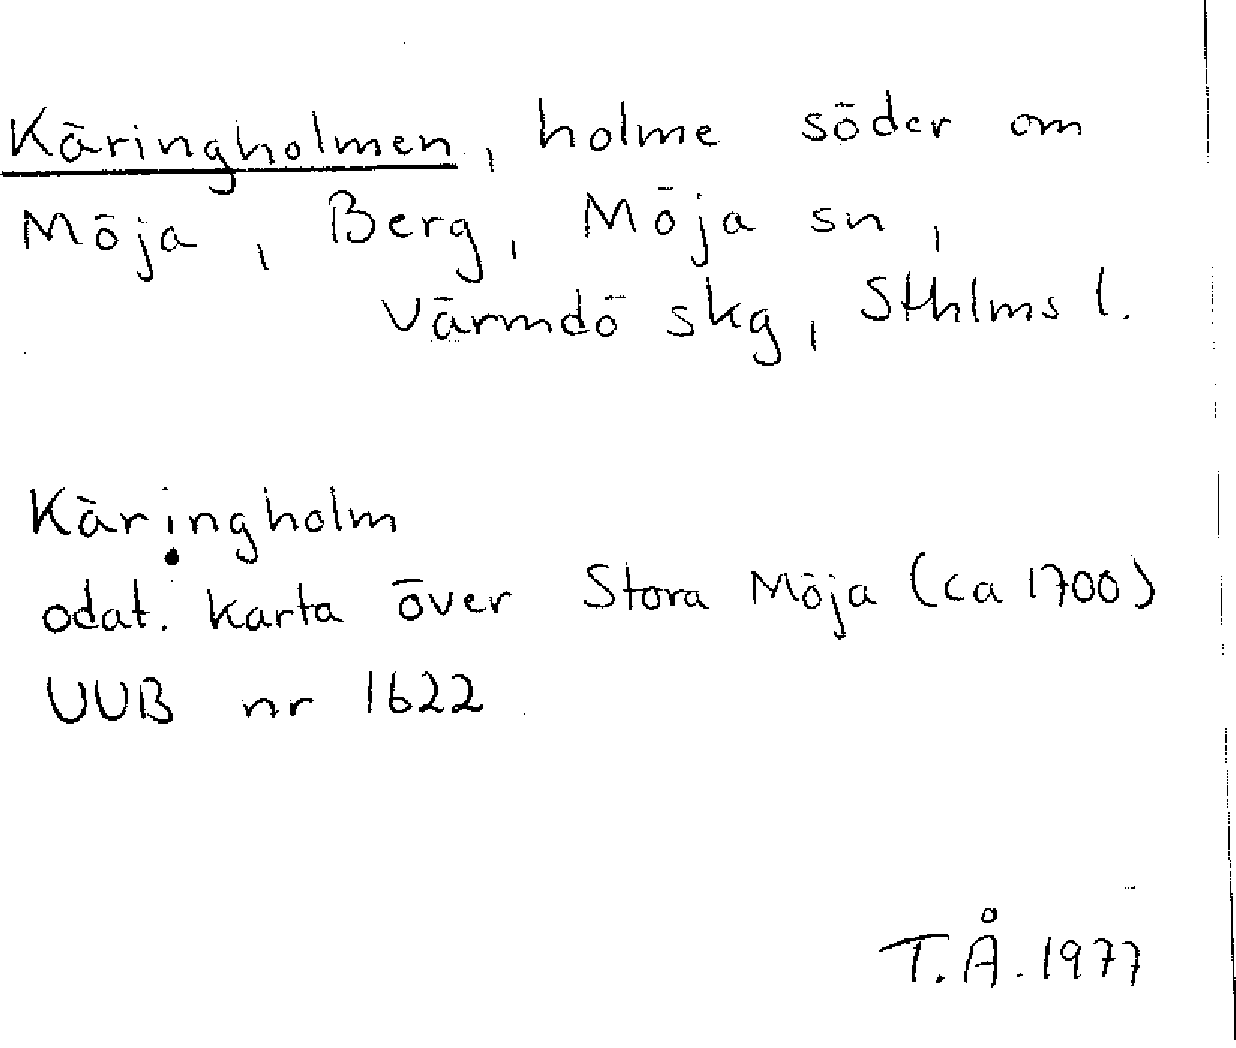 Käringholmen, holme söder om
Möja, Berg, Möja sn,
Värmdö skg, Sthlms l.
Käringholm
odat. karta över Stora Möja (ca 1700)
UUB nr 1622
T.Å. 1977